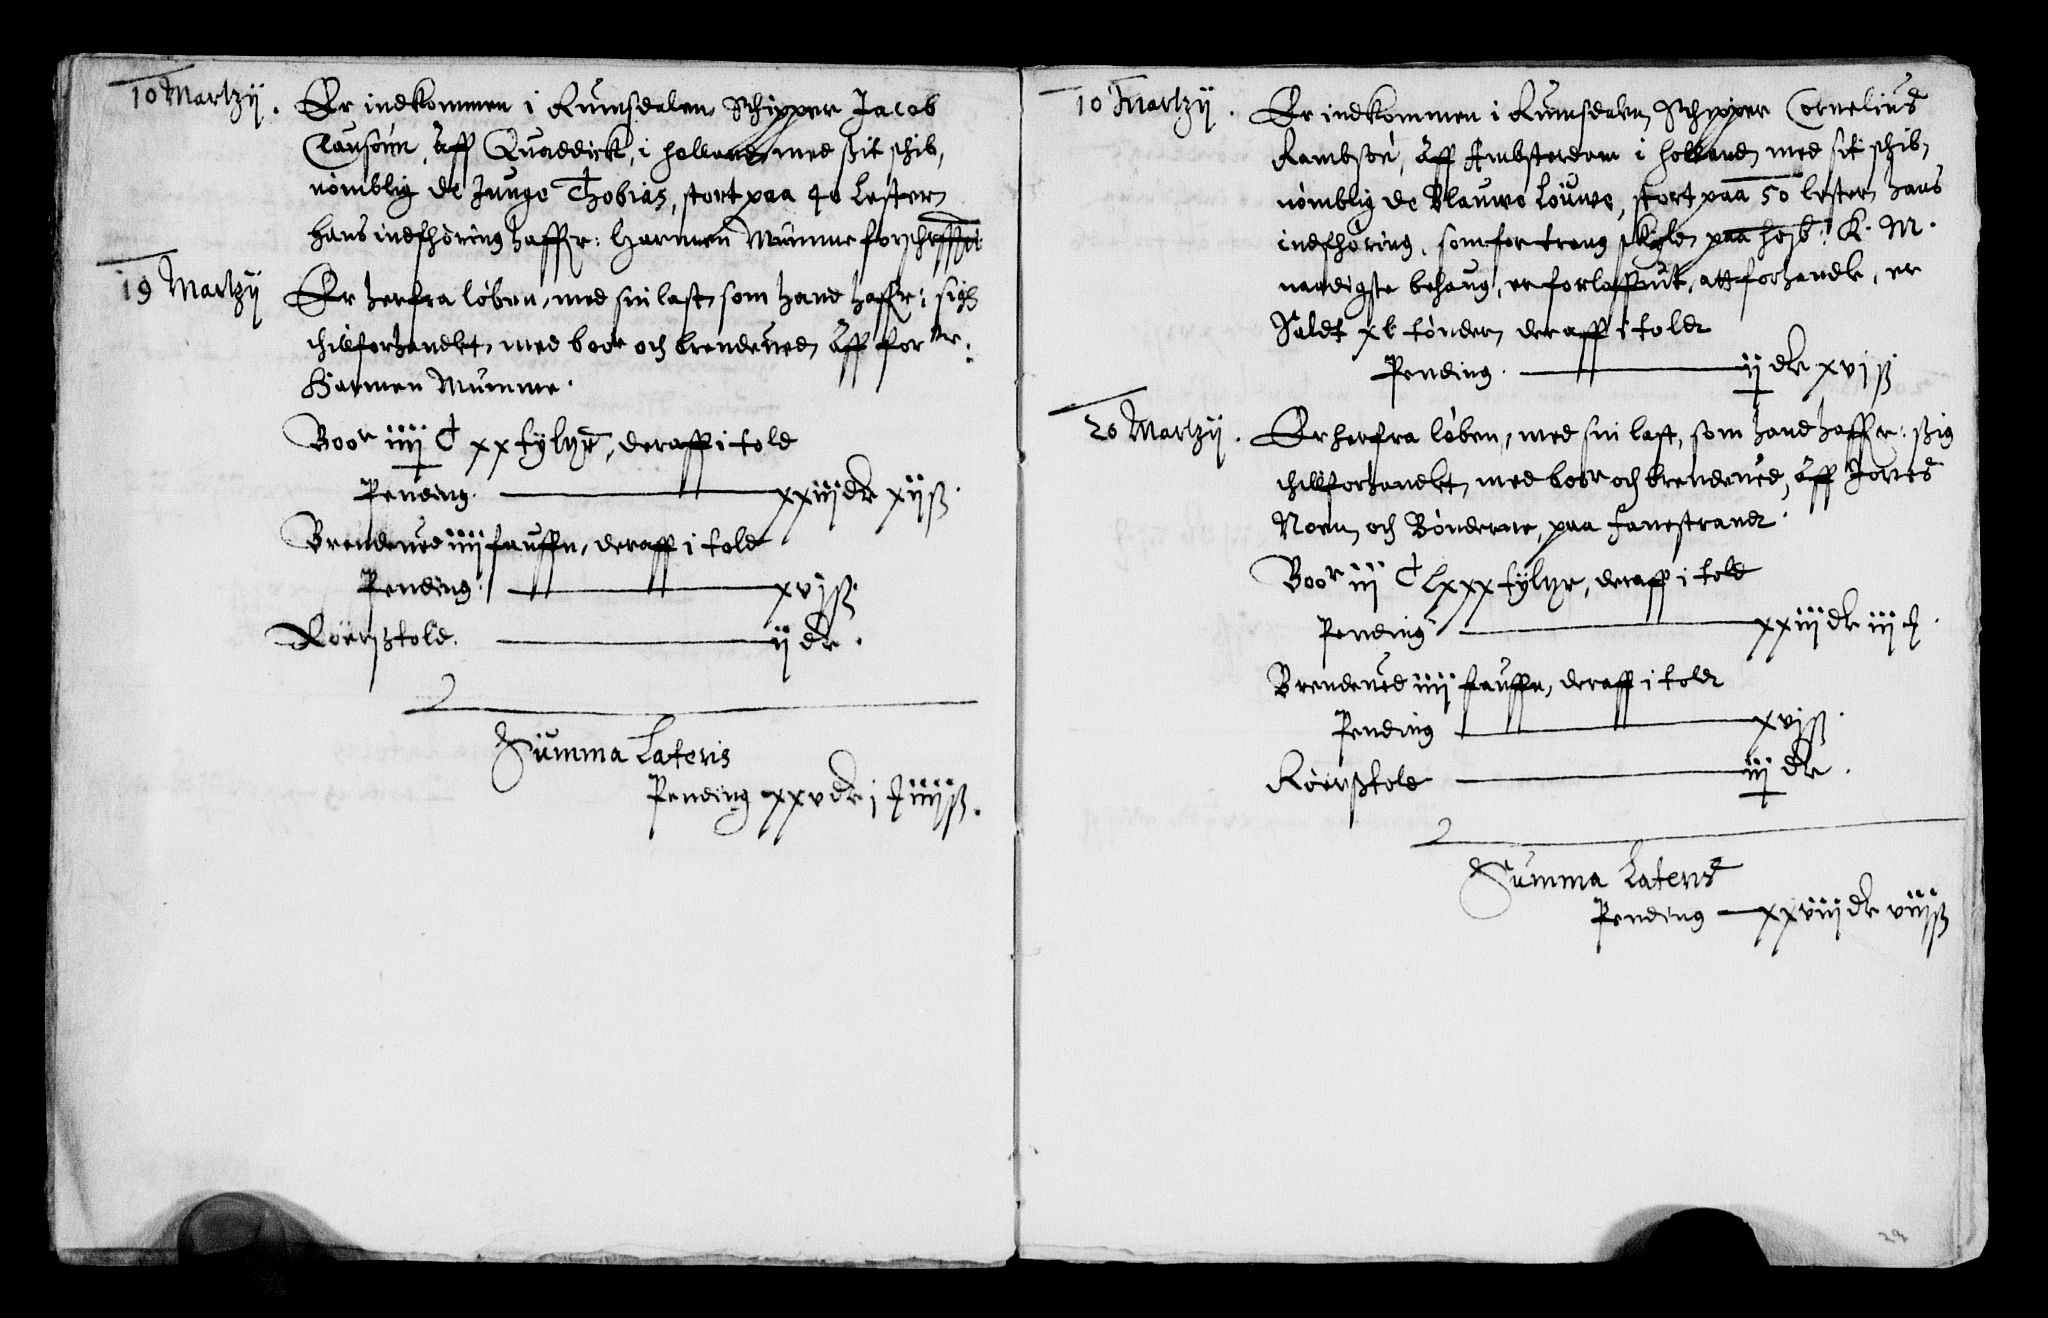 10 Martzij. Er indkommen i Rumsdalen, Schipper Jacob
Clausønn, Aff Quaddick, i holland, med ßit schib,
nømblig de Junge Thobias, stort paa 40 Lester,
hans indfhøring haffr: Harmen Mumme forschrffuit
19 Martzij Er herfra løben, med sin last, som hand haffr: sigh
thillforhandlet, med boor och brendeued, Aff forne:
Harmen Mumme.
Boor iiij C xx tÿltr, deraff i told
Pending. xxiij dlr xij ß.
Brendeued iiij fauffn, deraff i told
Pending. xvj ß.
Røerßtold. ij dlr.
Summa Lateris
Pending xxv dlr j ɟ iiij ß.
10 Martzij. Er indkommen i Rumsdalen, Schipper Cornelius
Rambsøn, Aff Ambsterdam i holland, med sit schib,
nømblig de Blauwe Løuwe, stort paa 50 lester, hans
indfhøring, som for trang skyld, paa højb: K. M.
naadigste behaug, er forloffuit, att forhandle, er
Saldt xl tønder, deraff i told
Pending. ij dlr xvj ß
20 Martzij. Er herfra løben, med sin last, som hand haffr: ßig
thillforhandlet, med boor och brendeued, Aff Jørres
Noen, och Bønderne, paa Fanestrand.
Boor iij C lxxx tÿltr, deraff i told
Pending xxiij dlr iij ɟ.
Brendeued iiij fauffn, deraff i told
Pending xvj ß.
Røerßtold iij dlr.
Summa Lateris
Pending xxviij dlr viij ß